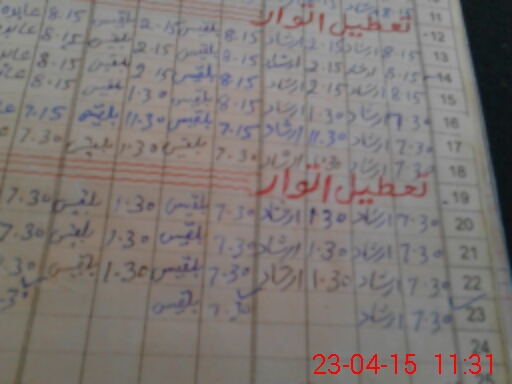 11
12 تعطیل اتوار
13 8.15 ارشاد 2.15 ارشاد 8.15 بلقیس 2.15 بلقیس 8.15
14 8.15 ارشاد 2.15 ارشاد 8.15 بلقیس 2.15 بلقیس 8.15
15 8.15 ارشاد 2.15 ارشاد 8.15 بلقیس 2.15 بلقیس 8.15
16 7.30 ارشاد 1.30 ارشاد 8.15 بلقیس 1.30 بلقیس 8.15
17 7.30 ارشاد 11.30 ارشاد 7.15 بلقیس 11.30 بلقیس 7.15
18 7.30 ارشاد 1.30 ارشاد 7.30 بلقیس 1.30 بلقیس 7.30
19 تعطیل اتوار
20 7.30 ارشاد 1.30 ارشاد 7.30 بلقیس 1.30 بلقیس 7.30
21 7.30 ارشاد 1.30 ارشاد 7.30 بلقیس 1.30 بلقیس 7.30
22 7.30 ارشاد 1.30 ارشاد 7.30 بلقیس 1.30 بلقیس
23 7.30 ارشاد 7.30 بلقیس
24
23-04-15 11:31